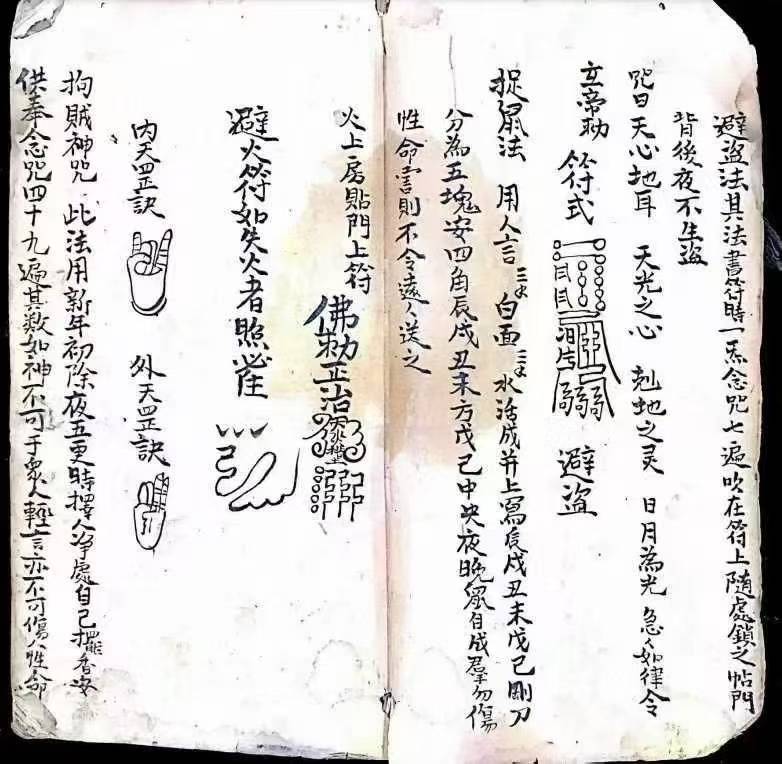 避盜法其法書符時一炁念咒七遍吹在符上隨處鎖之帖門
背後夜不生盜
咒曰天心地耳 天光之心 刦地之灵 日月為光 急〻如律令
玄帝勅 符式 避盜
捉鼠法 用人言三錢 白面三錢 水活成并上寫辰戌丑未戊己剛刀
分為五塊安四角辰戌丑未方戊己中央夜晚鼠自成羣勿傷
性命害則不令遠〻送之
火上房貼門上符
佛勅正治
避火符如失火者照必住
內天罡訣 外天罡訣
拘賊神咒 此法用新年初除夜五更時擇人净處自己擺香安
供奉念咒四十九遍其数如神不可于眾人輕言亦不可傷人性命